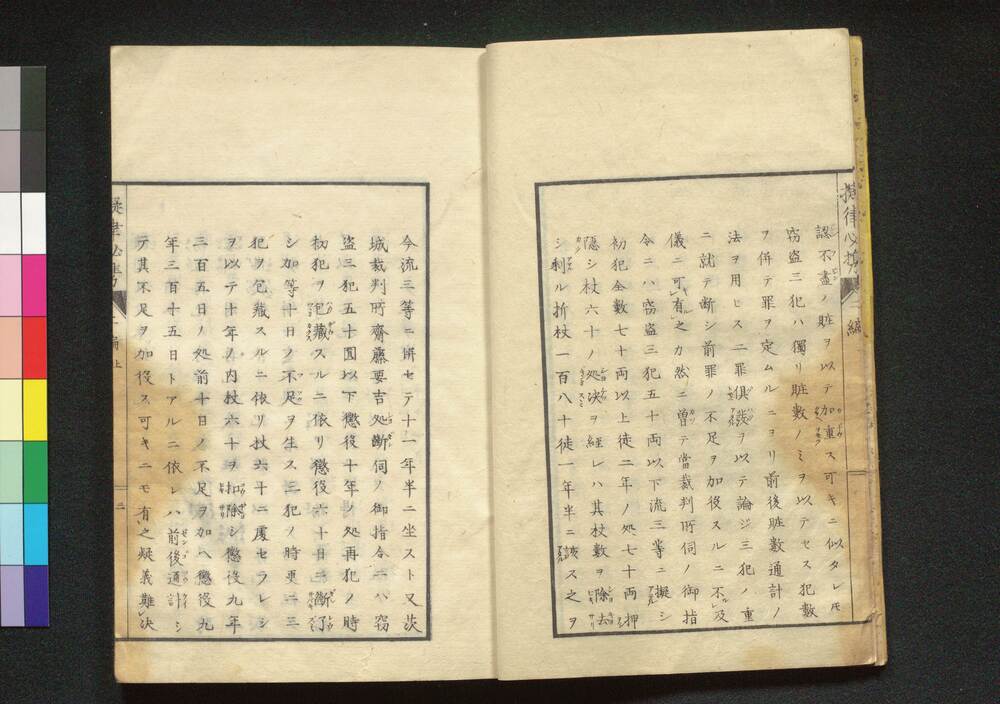 認不盡ノ贓ヲ以テ加重ス可キニ似タレモ
窃盗二犯ハ獨リ贓數ノミヲ以テセス犯數
ヲ併テ罪ヲ定ムルニヨリ前後贓數通計ノ
法ヲ用ヒス二罪俱發ヲ以テ論シ三犯ノ重
ニ就テ断シ前罪ノ不足ヲ加役スルニ不及
儀ニ可有之カ然ニ曽テ當裁判所伺ノ御指
令ニハ窃盗三犯五十両以下流三等ニ擬シ
初犯全數七十両以上徒二年ノ処七十両押
隠シ杖六十ノ処决ヲ経レハ其杖數ヲ除去
シ剰ル折杖一百八十徒一年半ニ該ス之ヲ
今流三等ニ併セテ十一年半ニ坐スト又茨
城裁判所齋藤要吉処断伺ノ御指令ニハ窃
盗三犯五十圓以下懲役十年ノ処再犯ノ時
初犯ヲ包藏スルニ依リ懲役六十日ニ断了
シ加等十日ノ不足ヲ生ス三犯ノ時更ニ三
犯ヲ包藏スルニ依リ杖六十ニ處セラレシ
ヲ以テ十年ノ内杖六十ヲ扣除シ懲役九年
三百五日ノ処前十日ノ不足ヲ加ヘ懲役九
年三百十五日トアルニ依レハ前後通計シ
テ其不足ヲ加役ス可キニモ有之疑義難决
二